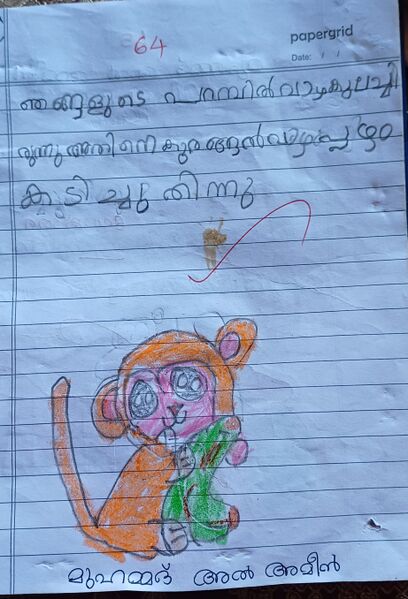 64
papergrid
Date: / /
ഞങ്ങളുടെ പറമ്പിൽ വാഴകുലച്ചി
രുന്നു അതിനെ കുരങ്ങൻ വാഴപ്പഴം
കടിച്ചു തിന്നു
മുഹമ്മദ് അൽ അമീൻ